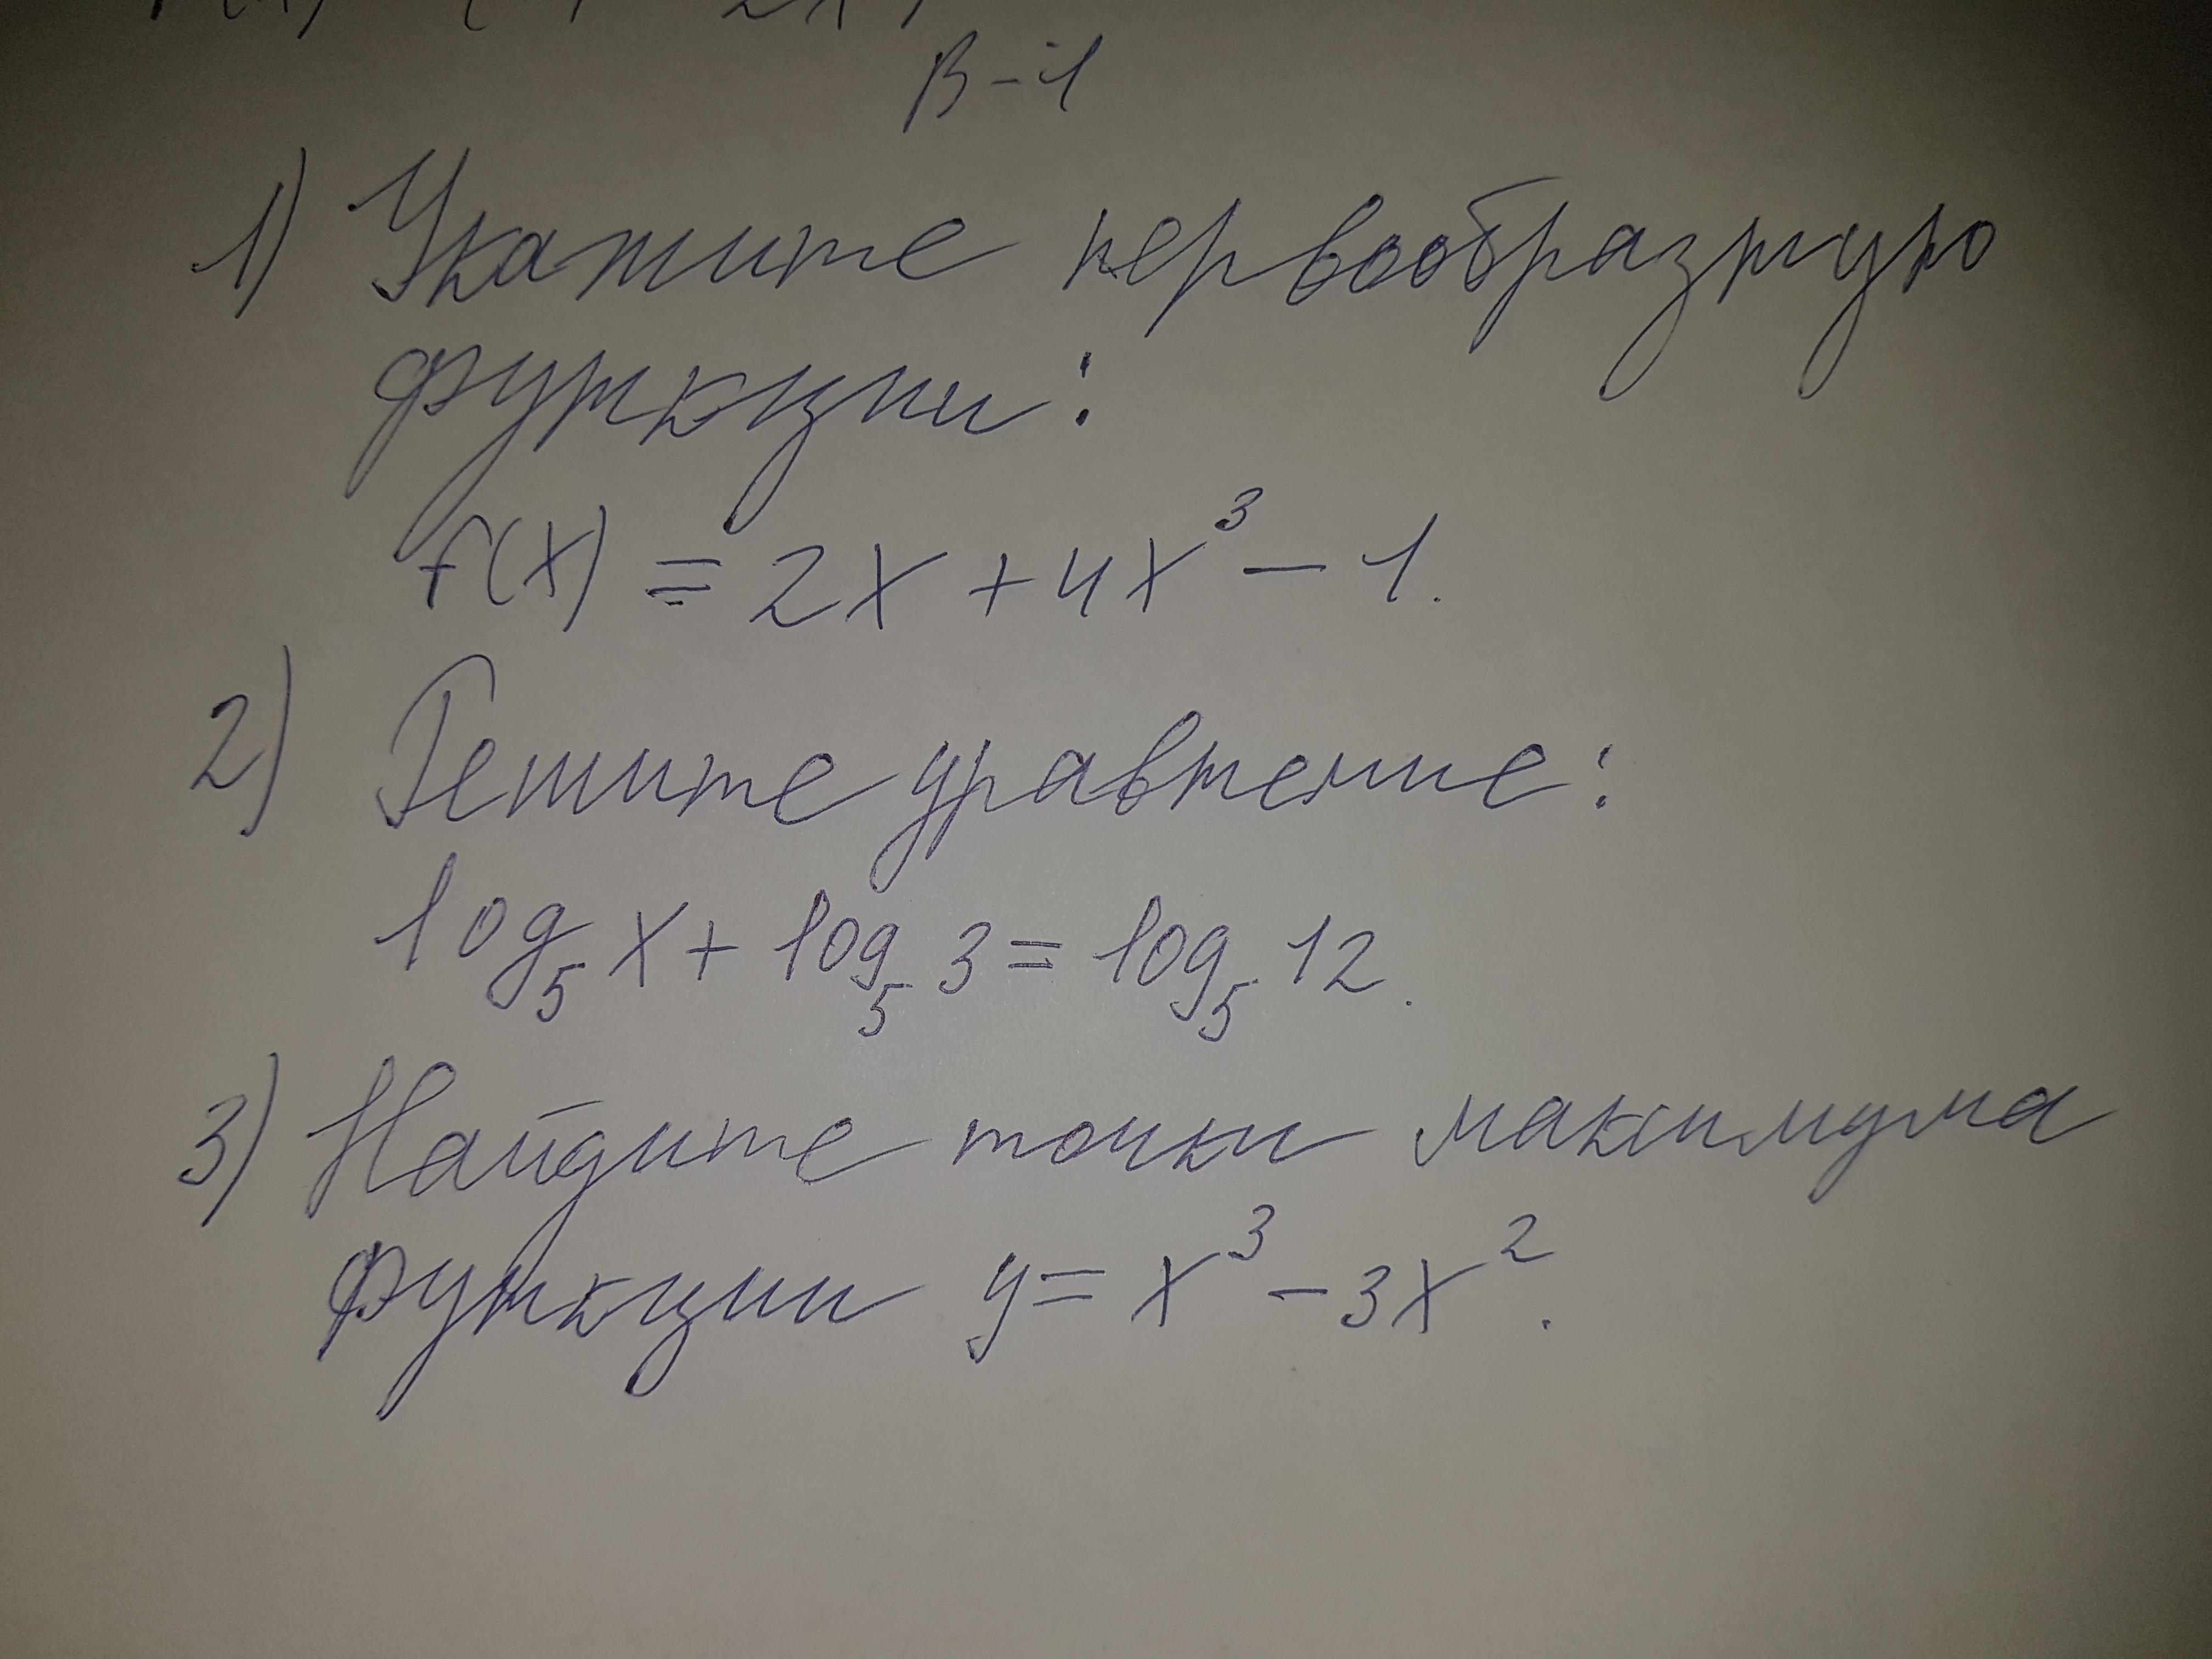 В-1
1) Укажите первообразную
функции:
f(x) = 2x + 4x³ - 1.
2) Решите уравнение:
log₅ x + log₅ 3 = log₅ 12.
3) Найдите точки максимума
функции y = x³ - 3x².